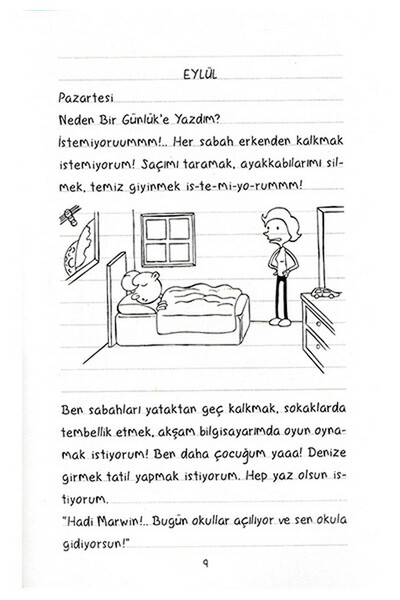 EYLÜL
Pazartesi
Neden Bir Günlük'e Yazdım?
İstemiyoruummm!.. Her sabah erkenden kalkmak
istemiyorum! Saçımı taramak, ayakkabılarımı sil-
mek, temiz giyinmek is-te-mi-yo-rummm!
Ben sabahları yataktan geç kalkmak, sokaklarda
tembellik etmek, akşam bilgisayarımda oyun oyna-
mak istiyorum! Ben daha çocuğum yaaa! Denize
girmek tatil yapmak istiyorum. Hep yaz olsun is-
tiyorum.
"Hadi Marwin!.. Bugün okullar açılıyor ve sen okula
gidiyorsun!"
9